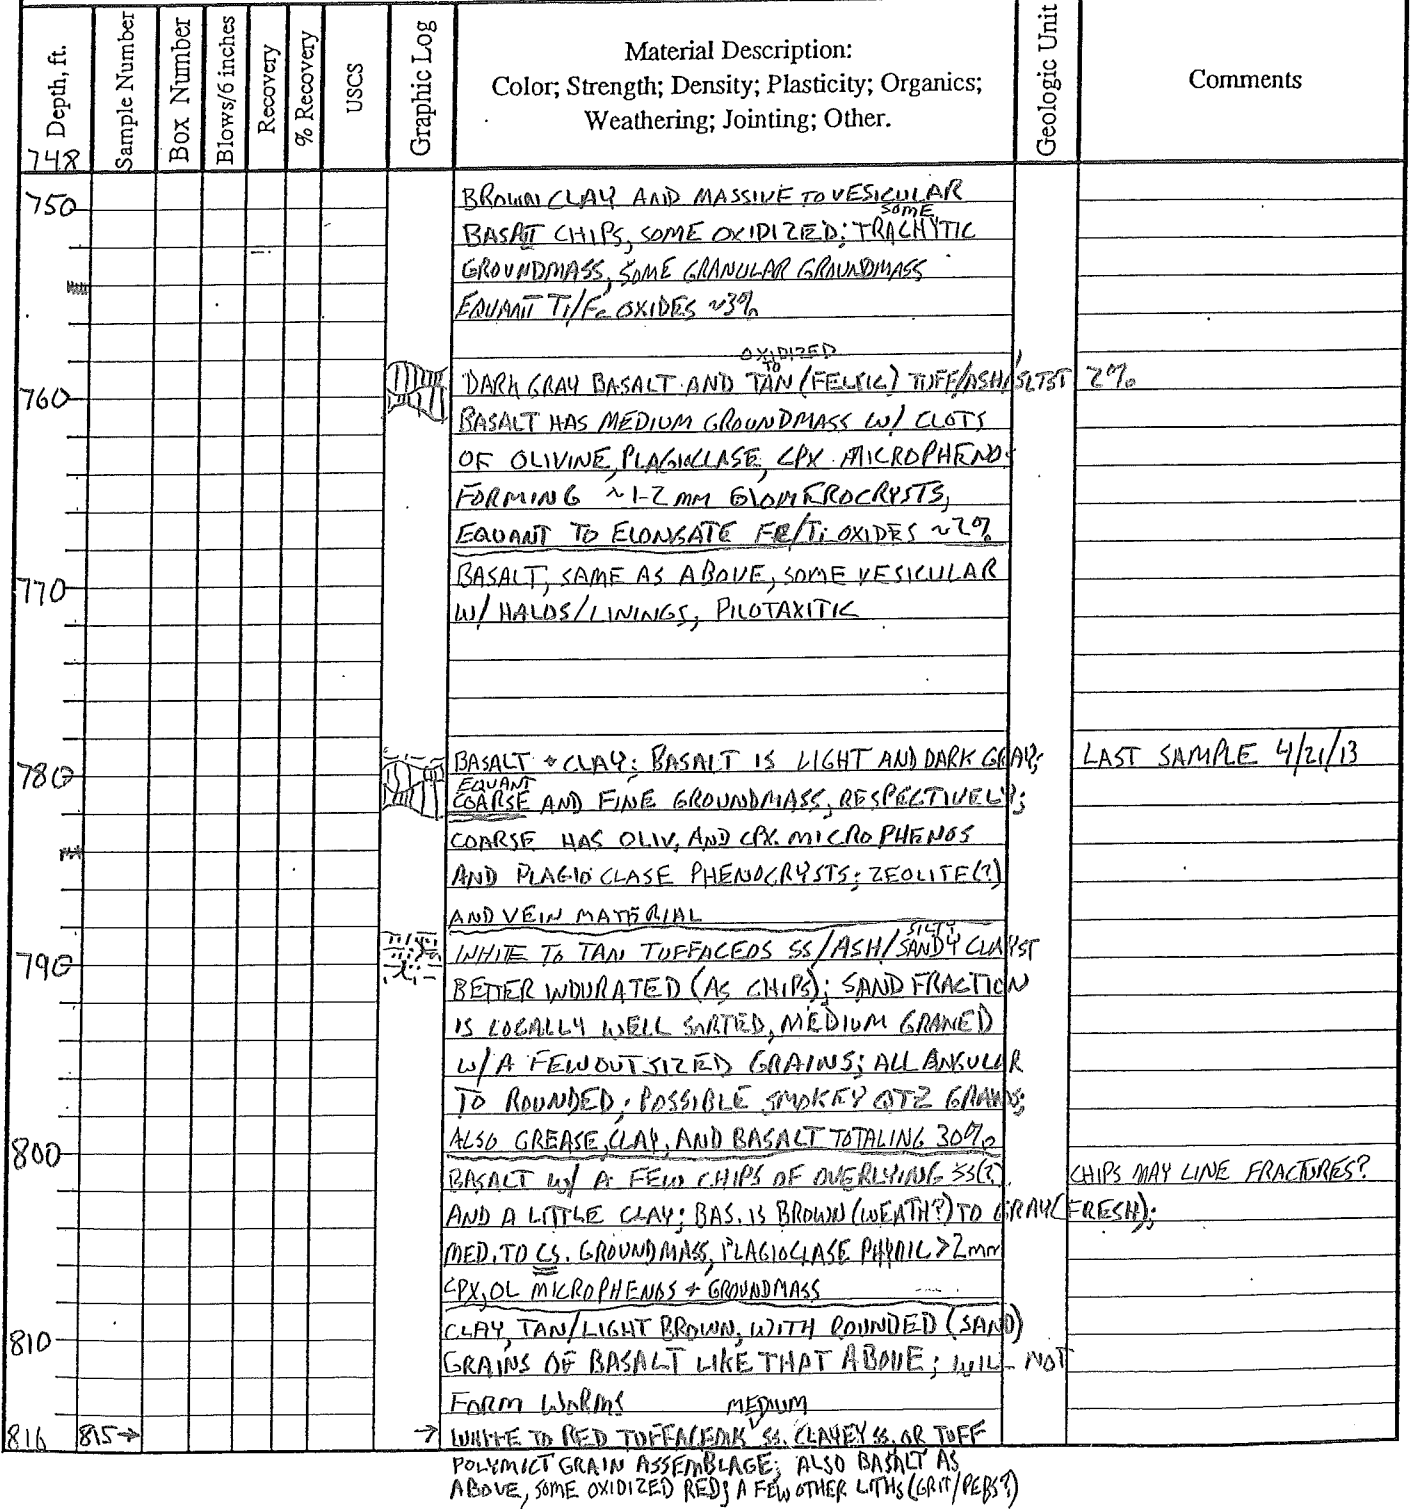 Depth, ft.
748
Sample Number
Box Number
Blows/6 inches
Recovery
% Recovery
USCS
Graphic Log
Material Description:
Color; Strength; Density; Plasticity; Organics;
Weathering; Jointing; Other.
Geologic Unit
Comments
750
BROWN CLAY AND MASSIVE TO VESICULAR
SOME
BASALT CHIPS, SOME OXIDIZED; TRACHYTIC
GROUNDMASS, SOME GRANULAR GROUNDMASS
EQUANT Ti/Fe OXIDES ~3%
OXIDIZED
TO
DARK GRAY BASALT AND TAN (FELSIC) TUFF/ASH/SLTST 2%
760
BASALT HAS MEDIUM GROUNDMASS W/ CLOTS
OF OLIVINE, PLAGIOCLASE, CPX MICROPHENOS
FORMING ~1-2 mm GLOMEROCRYSTS,
EQUANT TO ELONGATE FE/Ti OXIDES ~2%
770
BASALT, SAME AS ABOVE, SOME VESICULAR
W/ HALOS/LININGS, PILOTAXITIC
BASALT + CLAY: BASALT IS LIGHT AND DARK GRAY; LAST SAMPLE 4/21/13
780
EQUANT
COARSE AND FINE GROUNDMASS, RESPECTIVELY;
COARSE HAS OLIV, AND CPX. MICROPHENOS
AND PLAGIOCLASE PHENOCRYSTS; ZEOLITE(?)
AND VEIN MATERIAL
SILTY
790
WHITE TO TAN TUFFACEOS SS/ASH/SANDY CLAYST
BETTER INDURATED (AS CHIPS); SAND FRACTION
IS LOCALLY WELL SORTED, MEDIUM GRANED
W/ A FEW OUTSIZED GRAINS; ALL ANGULAR
TO ROUNDED; POSSIBLE SMOKEY QTZ GRAINS;
ALSO GREASE, CLAY, AND BASALT TOTALING 30%
800
BASALT W/ A FEW CHIPS OF OVERLYING SS(?) CHIPS MAY LINE FRACTURES?
AND A LITTLE CLAY; BAS. IS BROWN (WEATH?) TO GRAY (FRESH);
MED. TO CS. GROUNDMASS, PLAGIOCLASE PHYRIC >2mm
CPX, OL MICROPHENOS + GROUNDMASS
810
CLAY, TAN/LIGHT BROWN, WITH ROUNDED (SAND)
GRAINS OF BASALT LIKE THAT ABOVE; WILL NOT
FORM WORMS
MEDIUM
816 815→ → WHITE TO RED TUFFACEOUS SS. CLAYEY SS. OR TUFF
POLYMICT GRAIN ASSEMBLAGE; ALSO BASALT AS
ABOVE, SOME OXIDIZED RED; A FEW OTHER LITHS (GRIT/PEBS?)